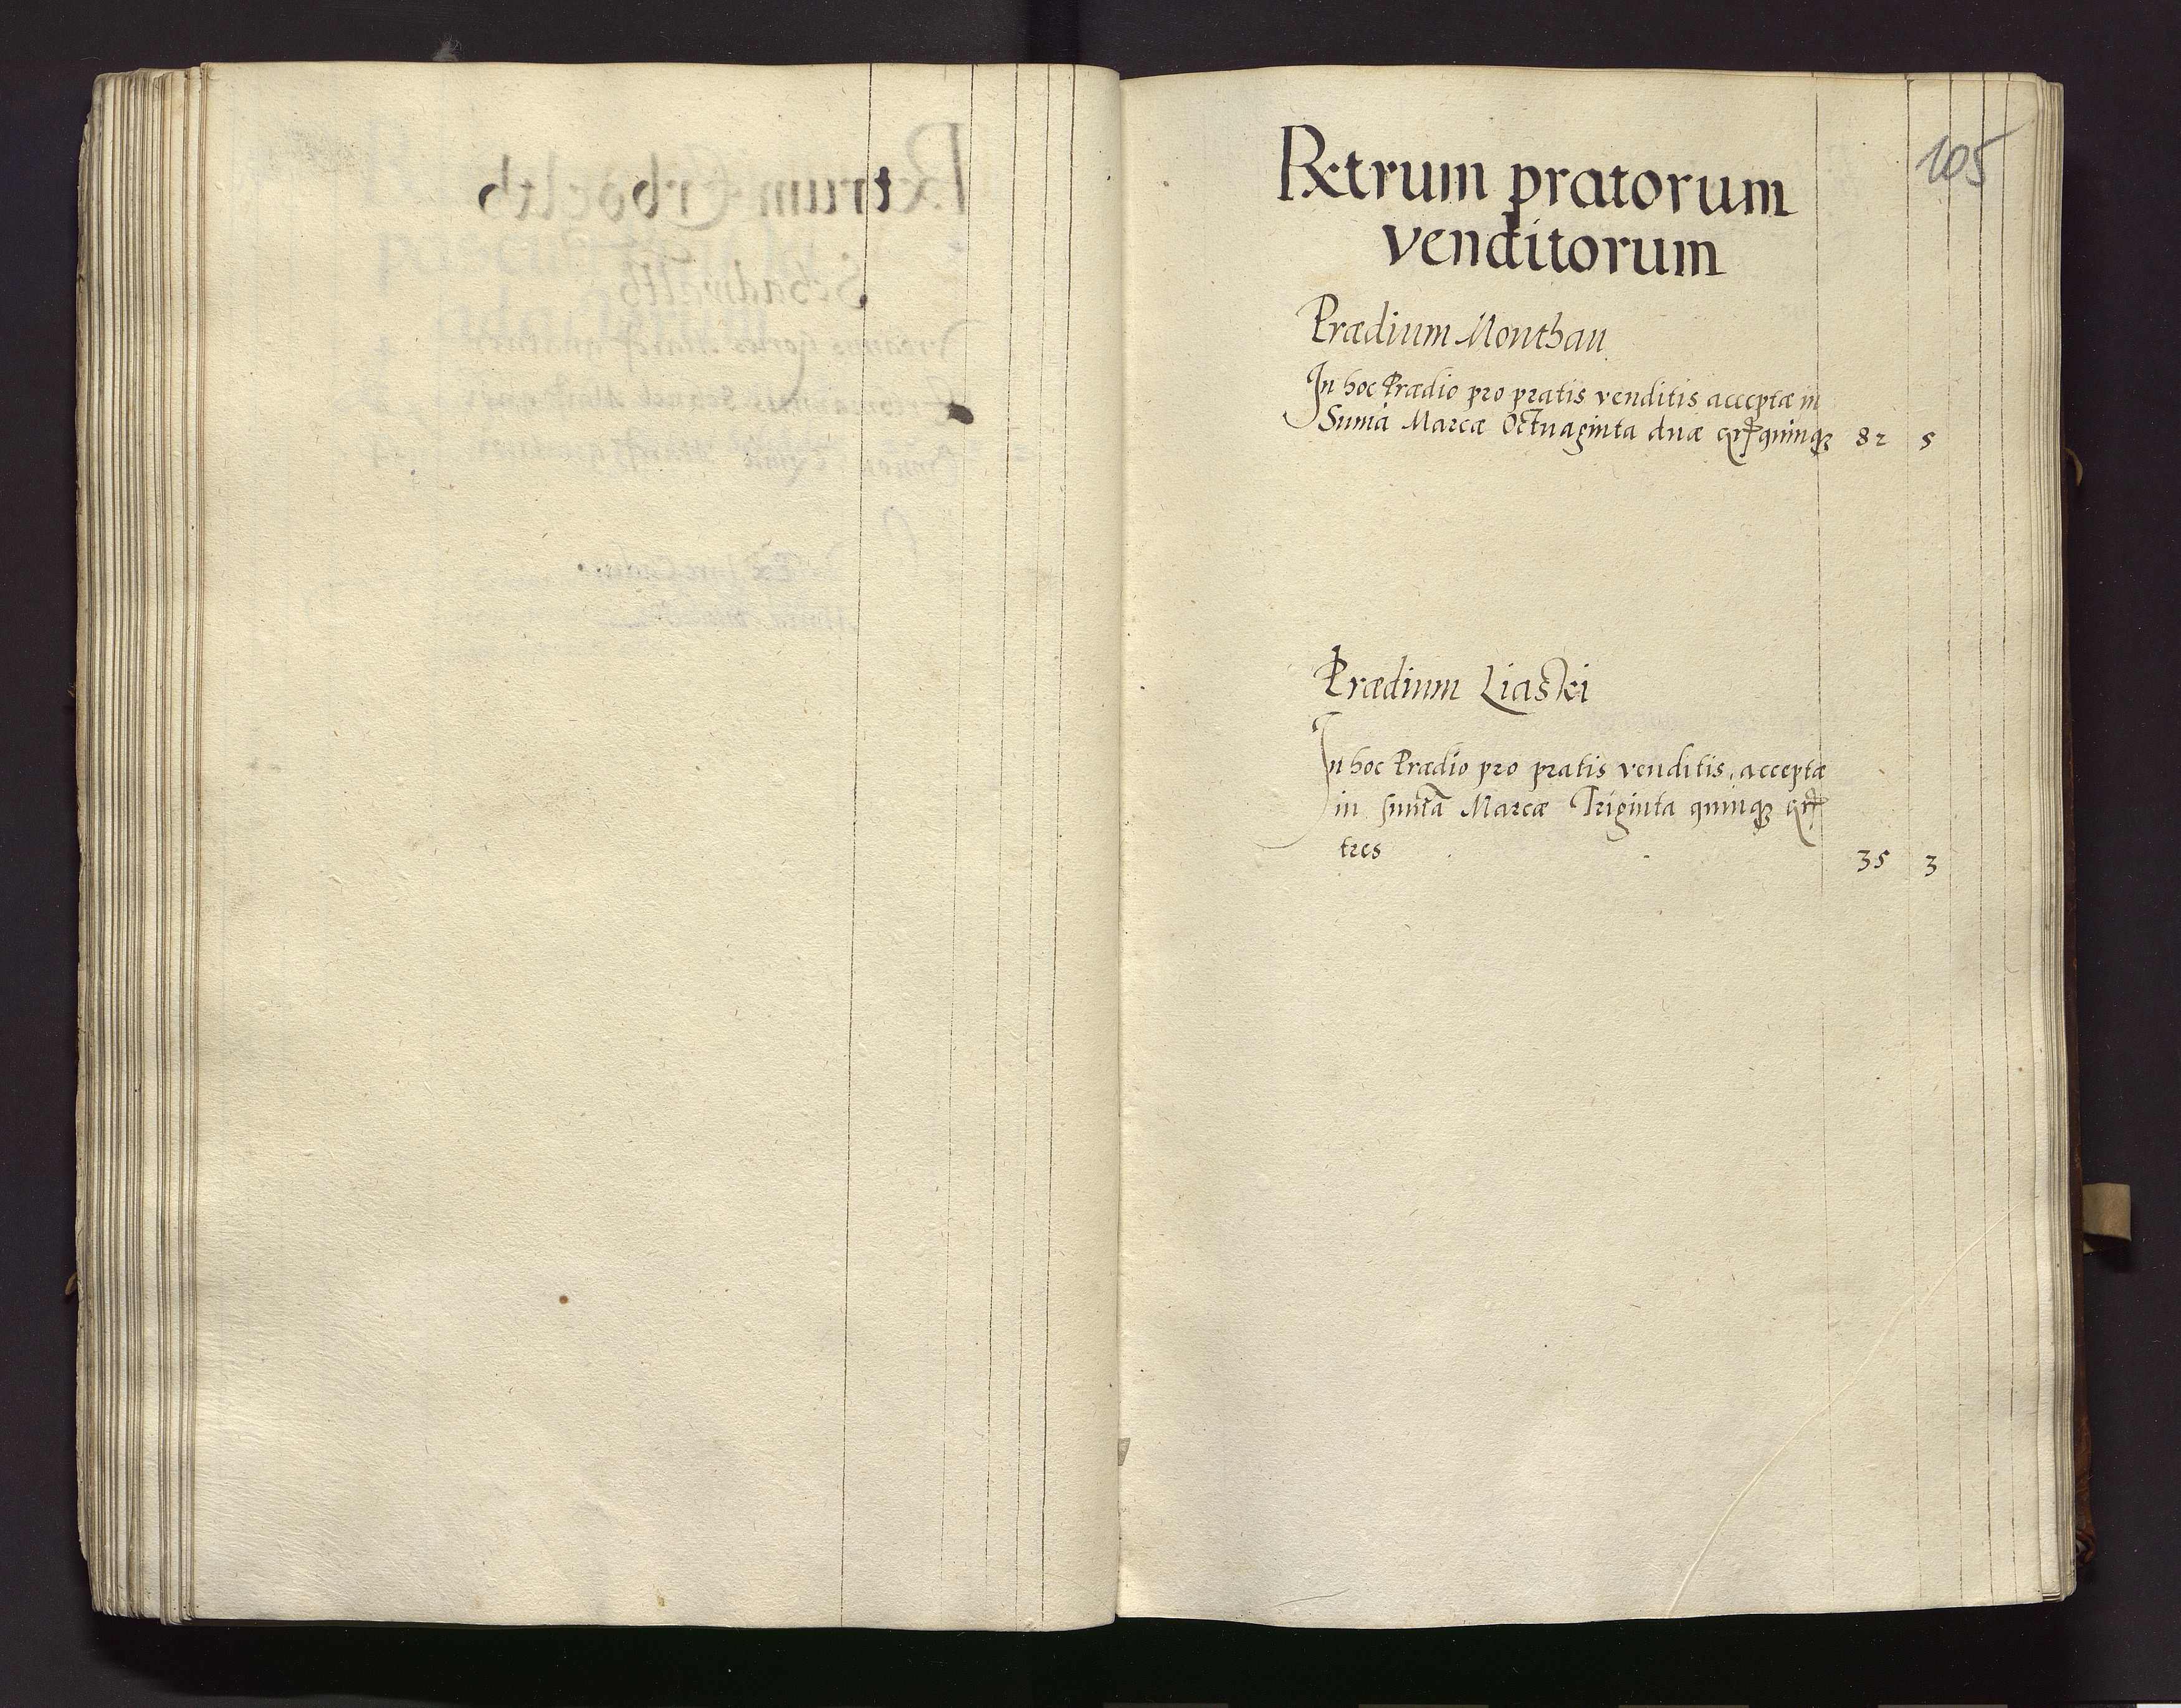 105
Rxtrum pratorum
venditorum
Prædium Monthau
In hoc Prædio pro pratis venditis acceptæ in
Suma Marcæ Octuaginta duæ gr quinqꝫ 82 5
Prædium Liaski
In hoc Prædio pro pratis venditis, acceptæ
in sum̃a Marcæ Triginta quinqꝫ gr
tres 35 3